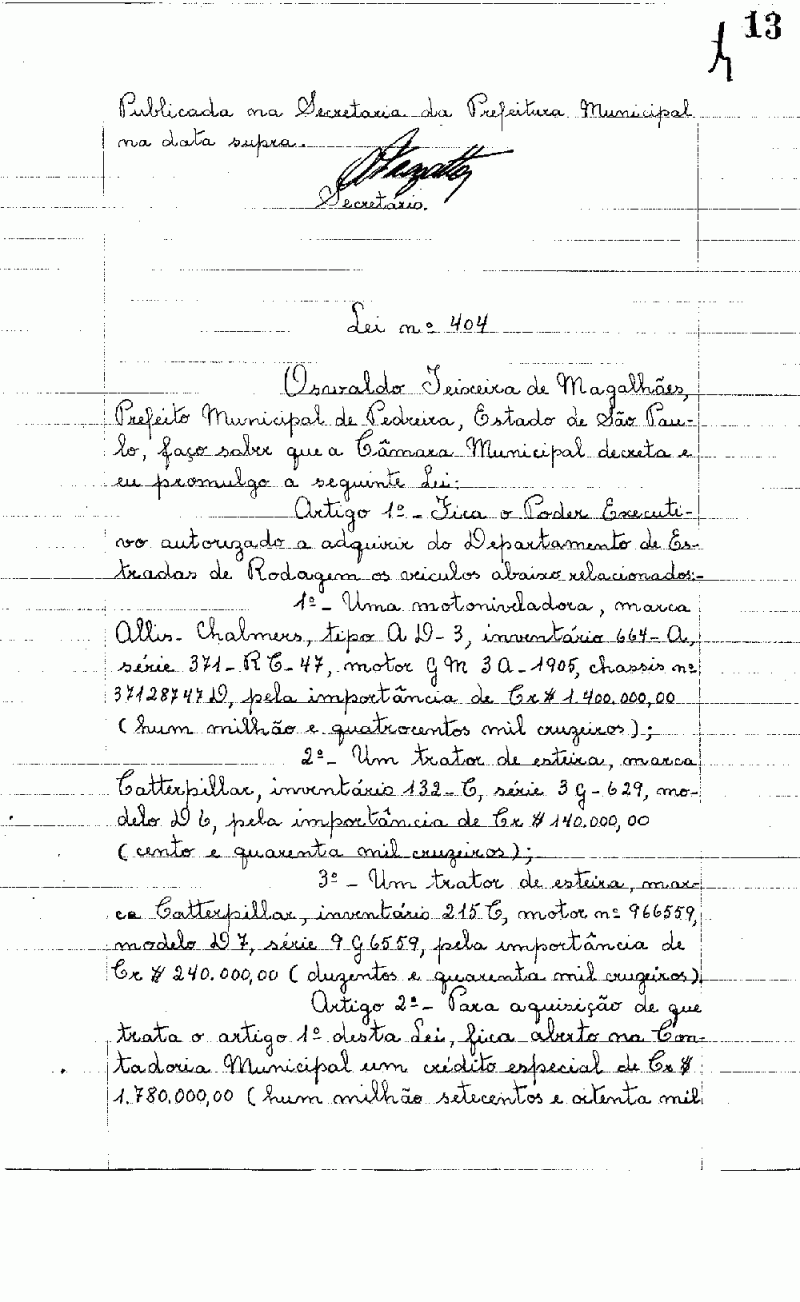 13
Publicada na Secretaria da Prefeitura Municipal
na data supra.
Secretário.
Lei nº 404
Oswaldo Teixeira de Magalhães,
Prefeito Municipal de Pedreira, Estado de São Pau-
lo, faço saber que a Câmara Municipal decreta e
eu promulgo a seguinte Lei:
Artigo 1º - Fica o Poder Executi-
vo autorizado a adquirir do Departamento de Es-
tradas de Rodagem os veiculos abaixo relacionados:-
1º - Uma motoniveladora, marca
Allis-Chalmers, tipo A D-3, inventário 664-A,
série 371-RC-47, motor GM 3A-1905, chassis nº
37128747D, pela importância de Cr$ 1.400.000,00
(hum milhão e quatrocentos mil cruzeiros);
2º - Um trator de esteira, marca
Catterpillar, inventário 132-C, série 3G-629, mo-
delo D6, pela importância de Cr$ 140.000,00
(cento e quarenta mil cruzeiros);
3º - Um trator de esteira, mar-
ca Catterpillar, inventário 215C, motor nº 966559,
modelo D7, série 9G6559, pela importância de
Cr$ 240.000,00 (duzentos e quarenta mil cruzeiros).
Artigo 2º - Para aquisição de que
trata o artigo 1º desta Lei, fica aberto na Con-
tadoria Municipal um crédito especial de Cr$
1.780.000,00 (hum milhão setecentos e oitenta mil